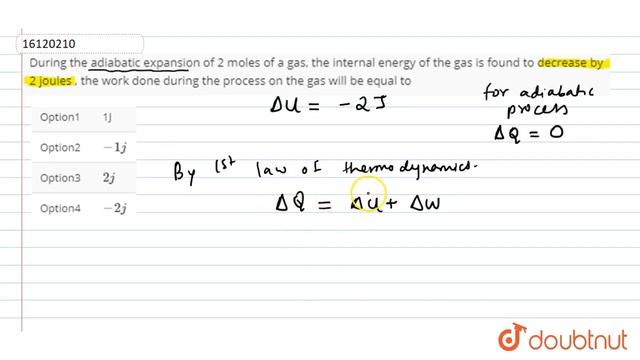 16120210
During the adiabatic expansion of 2 moles of a gas, the internal energy of the gas is found to decrease by
2 joules , the work done during the process on the gas will be equal to
Option1 1J
Option2 −1j
Option3 2j
Option4 −2j
ΔU = -2J
for adiabatic
process
ΔQ = 0
By 1st law of thermodynamics.
ΔQ = ΔU + ΔW
doubtnut